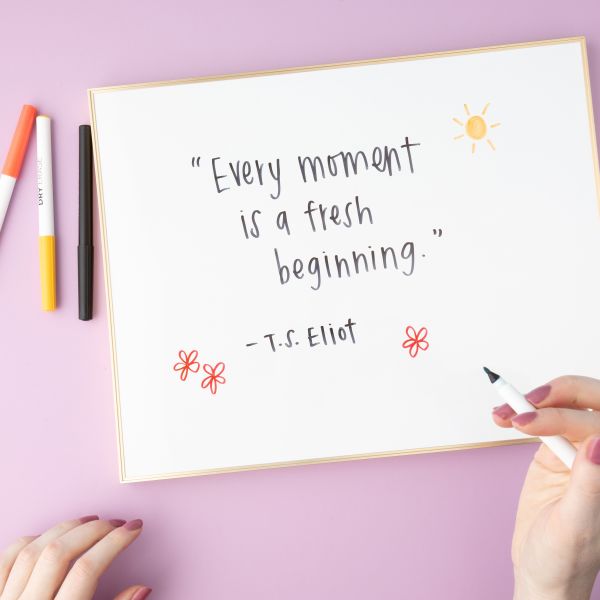 "Every moment
is a fresh
beginning."
- T.S. Eliot
DRY ERASE